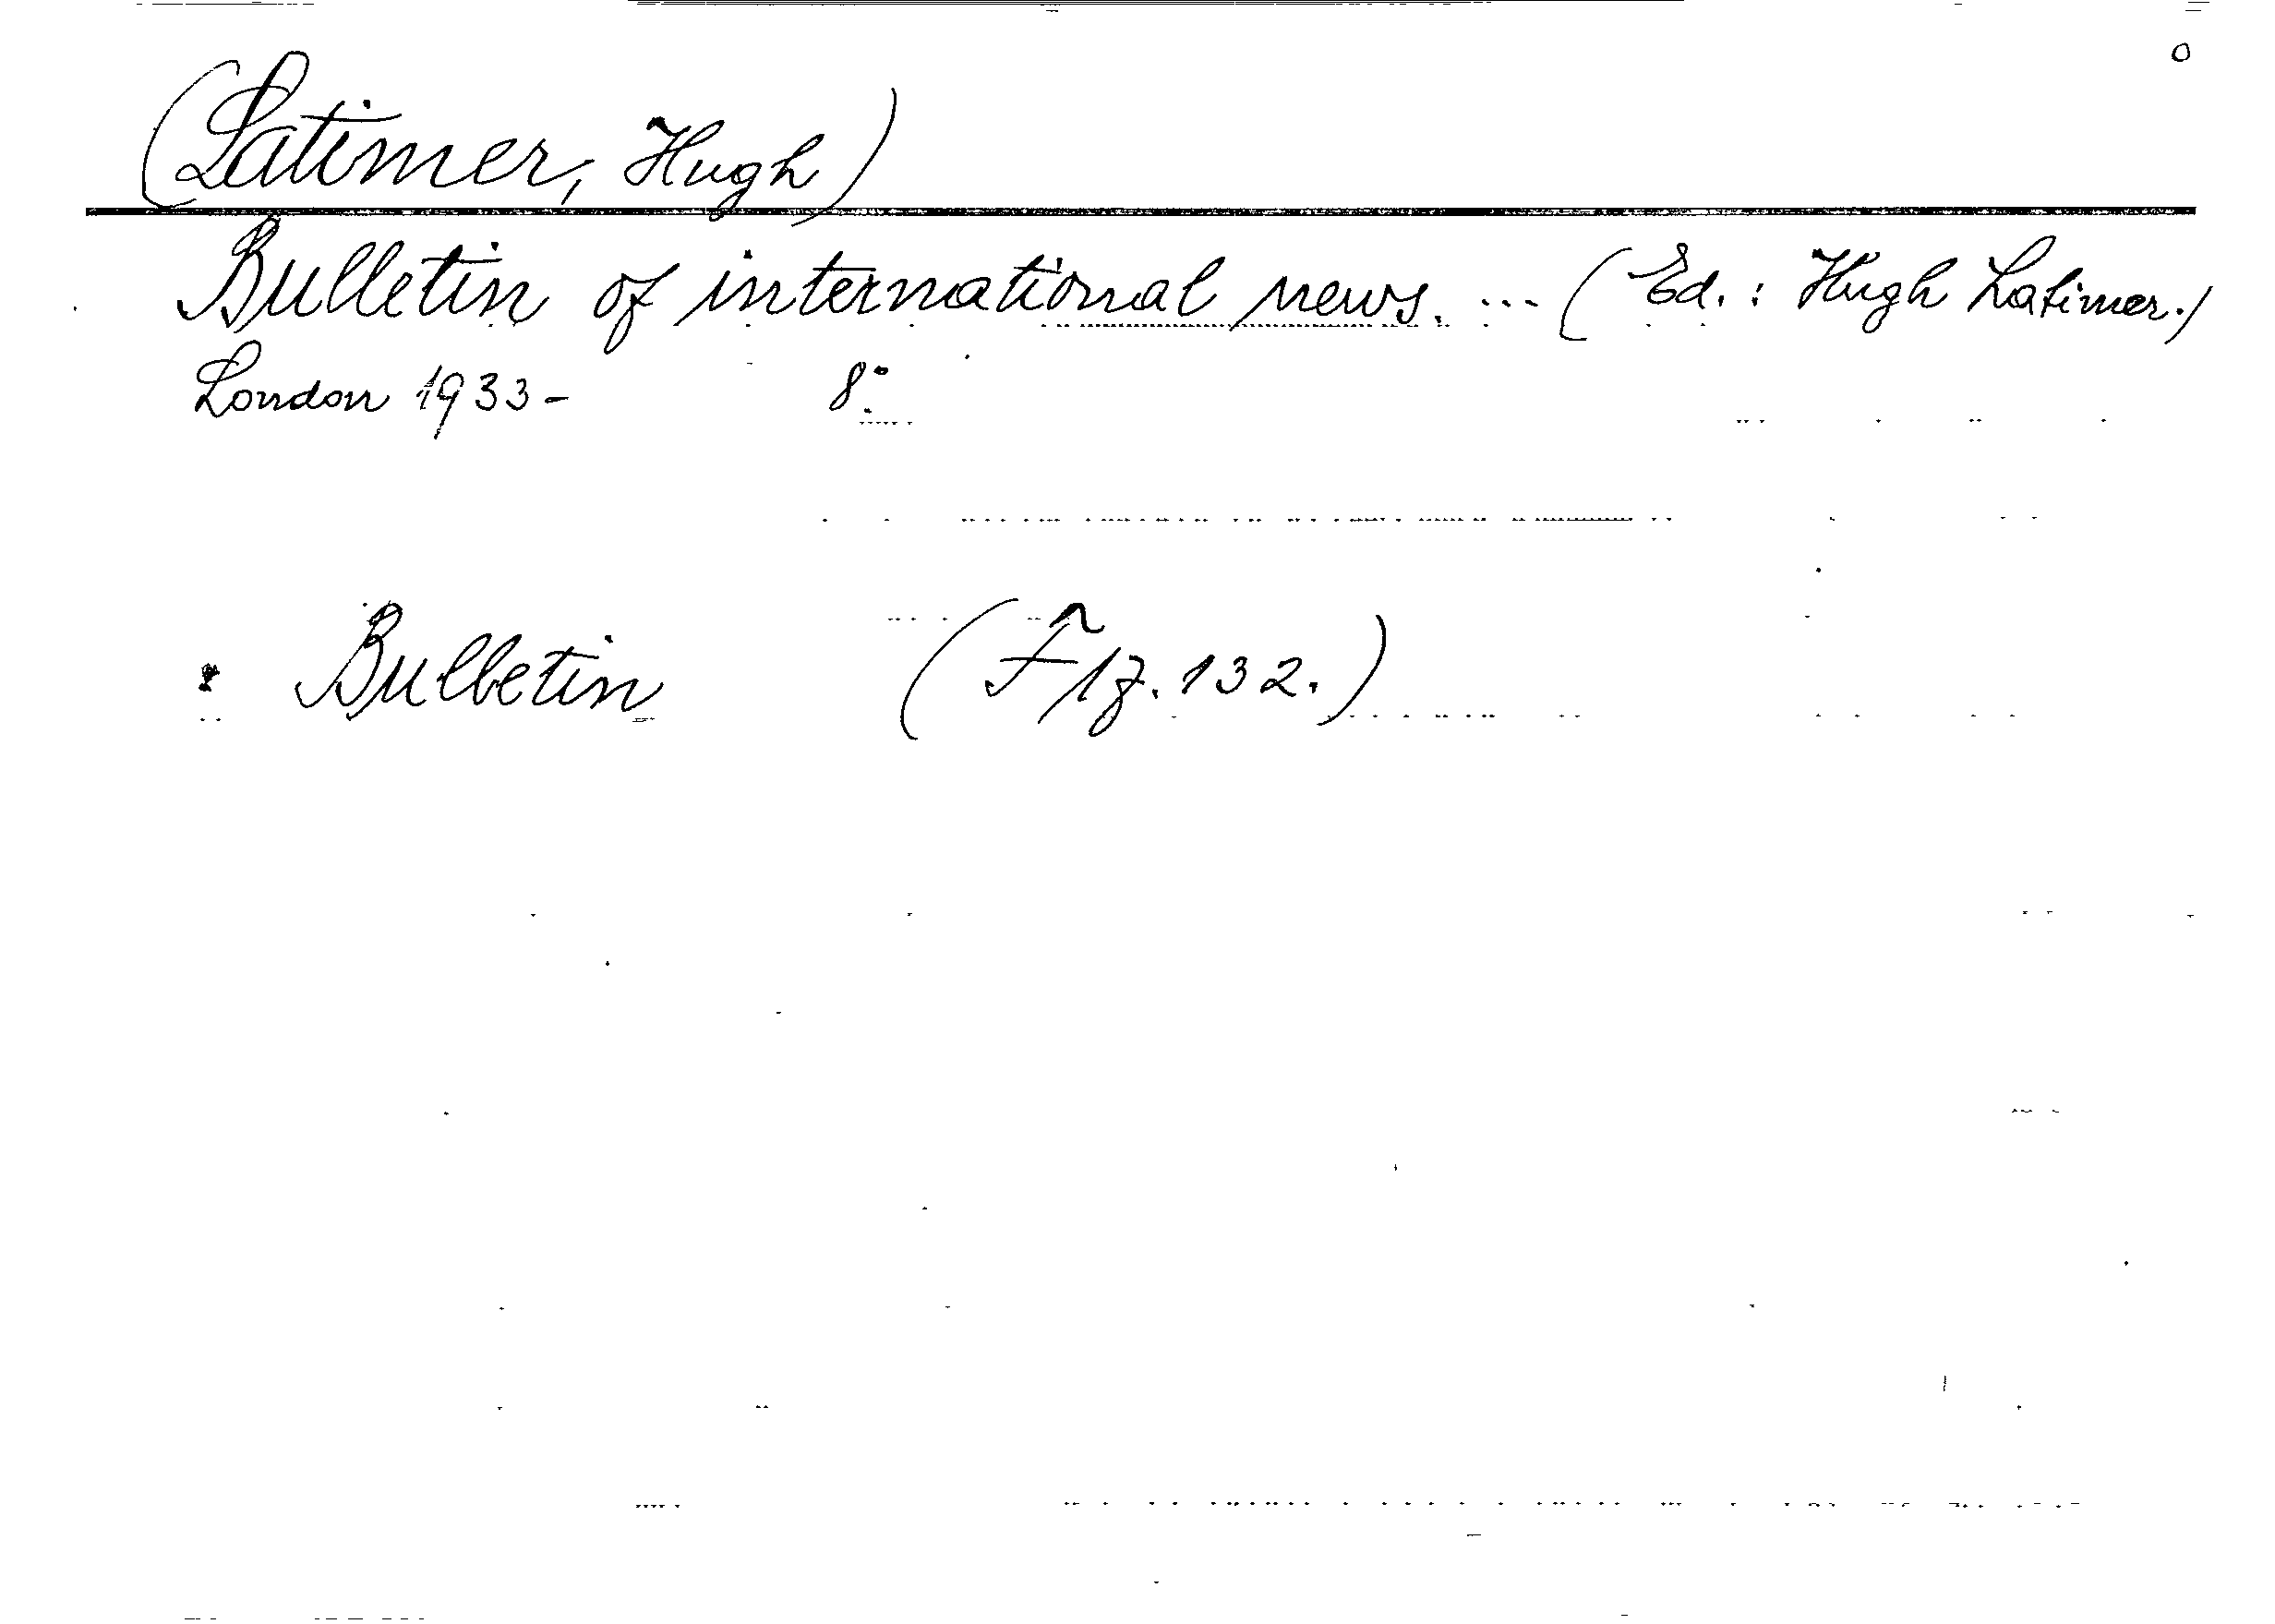 (Latimer, Hugh)
Bulletin of international news. ... (Ed.: Hugh Latimer.)
London 1933- 8°.
Bulletin (F1z.132.)